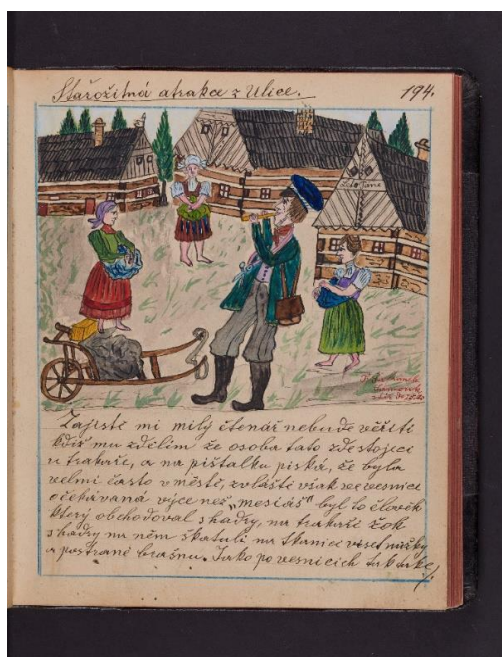 Starožitná atrakce z Ulice.
194.
Zajisté mi milý čtenář nebude věřiti
když mu zdělím že osoba tato zde stojecí
u trakaře, a na píšťalku píská, že byla
velmi často v městě, zvláště však ve vesnice
očekávaná výce než „mesiáš" byl to člověk
který obchodoval s hadry, na trakaři žok
s hadry na něm škatuli na tkanici visel nůžky
a postraně brašnu. Jako po vesnicích tak také